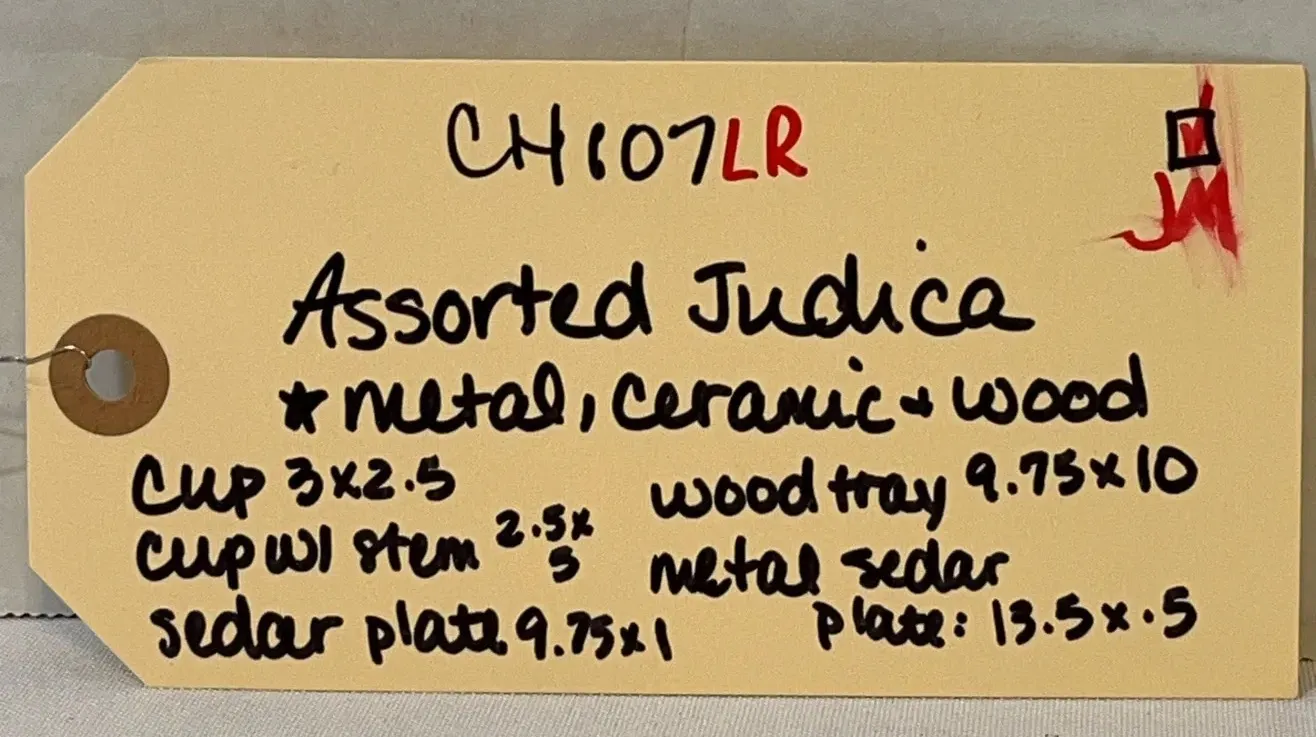 CH107LR
JM
Assorted Judica
★ metal, ceramic + wood
Cup 3x2.5
cup w/ stem 2.5x
5
sedar plate 9.75x1
wood tray 9.75x10
metal sedar
plate: 13.5x.5